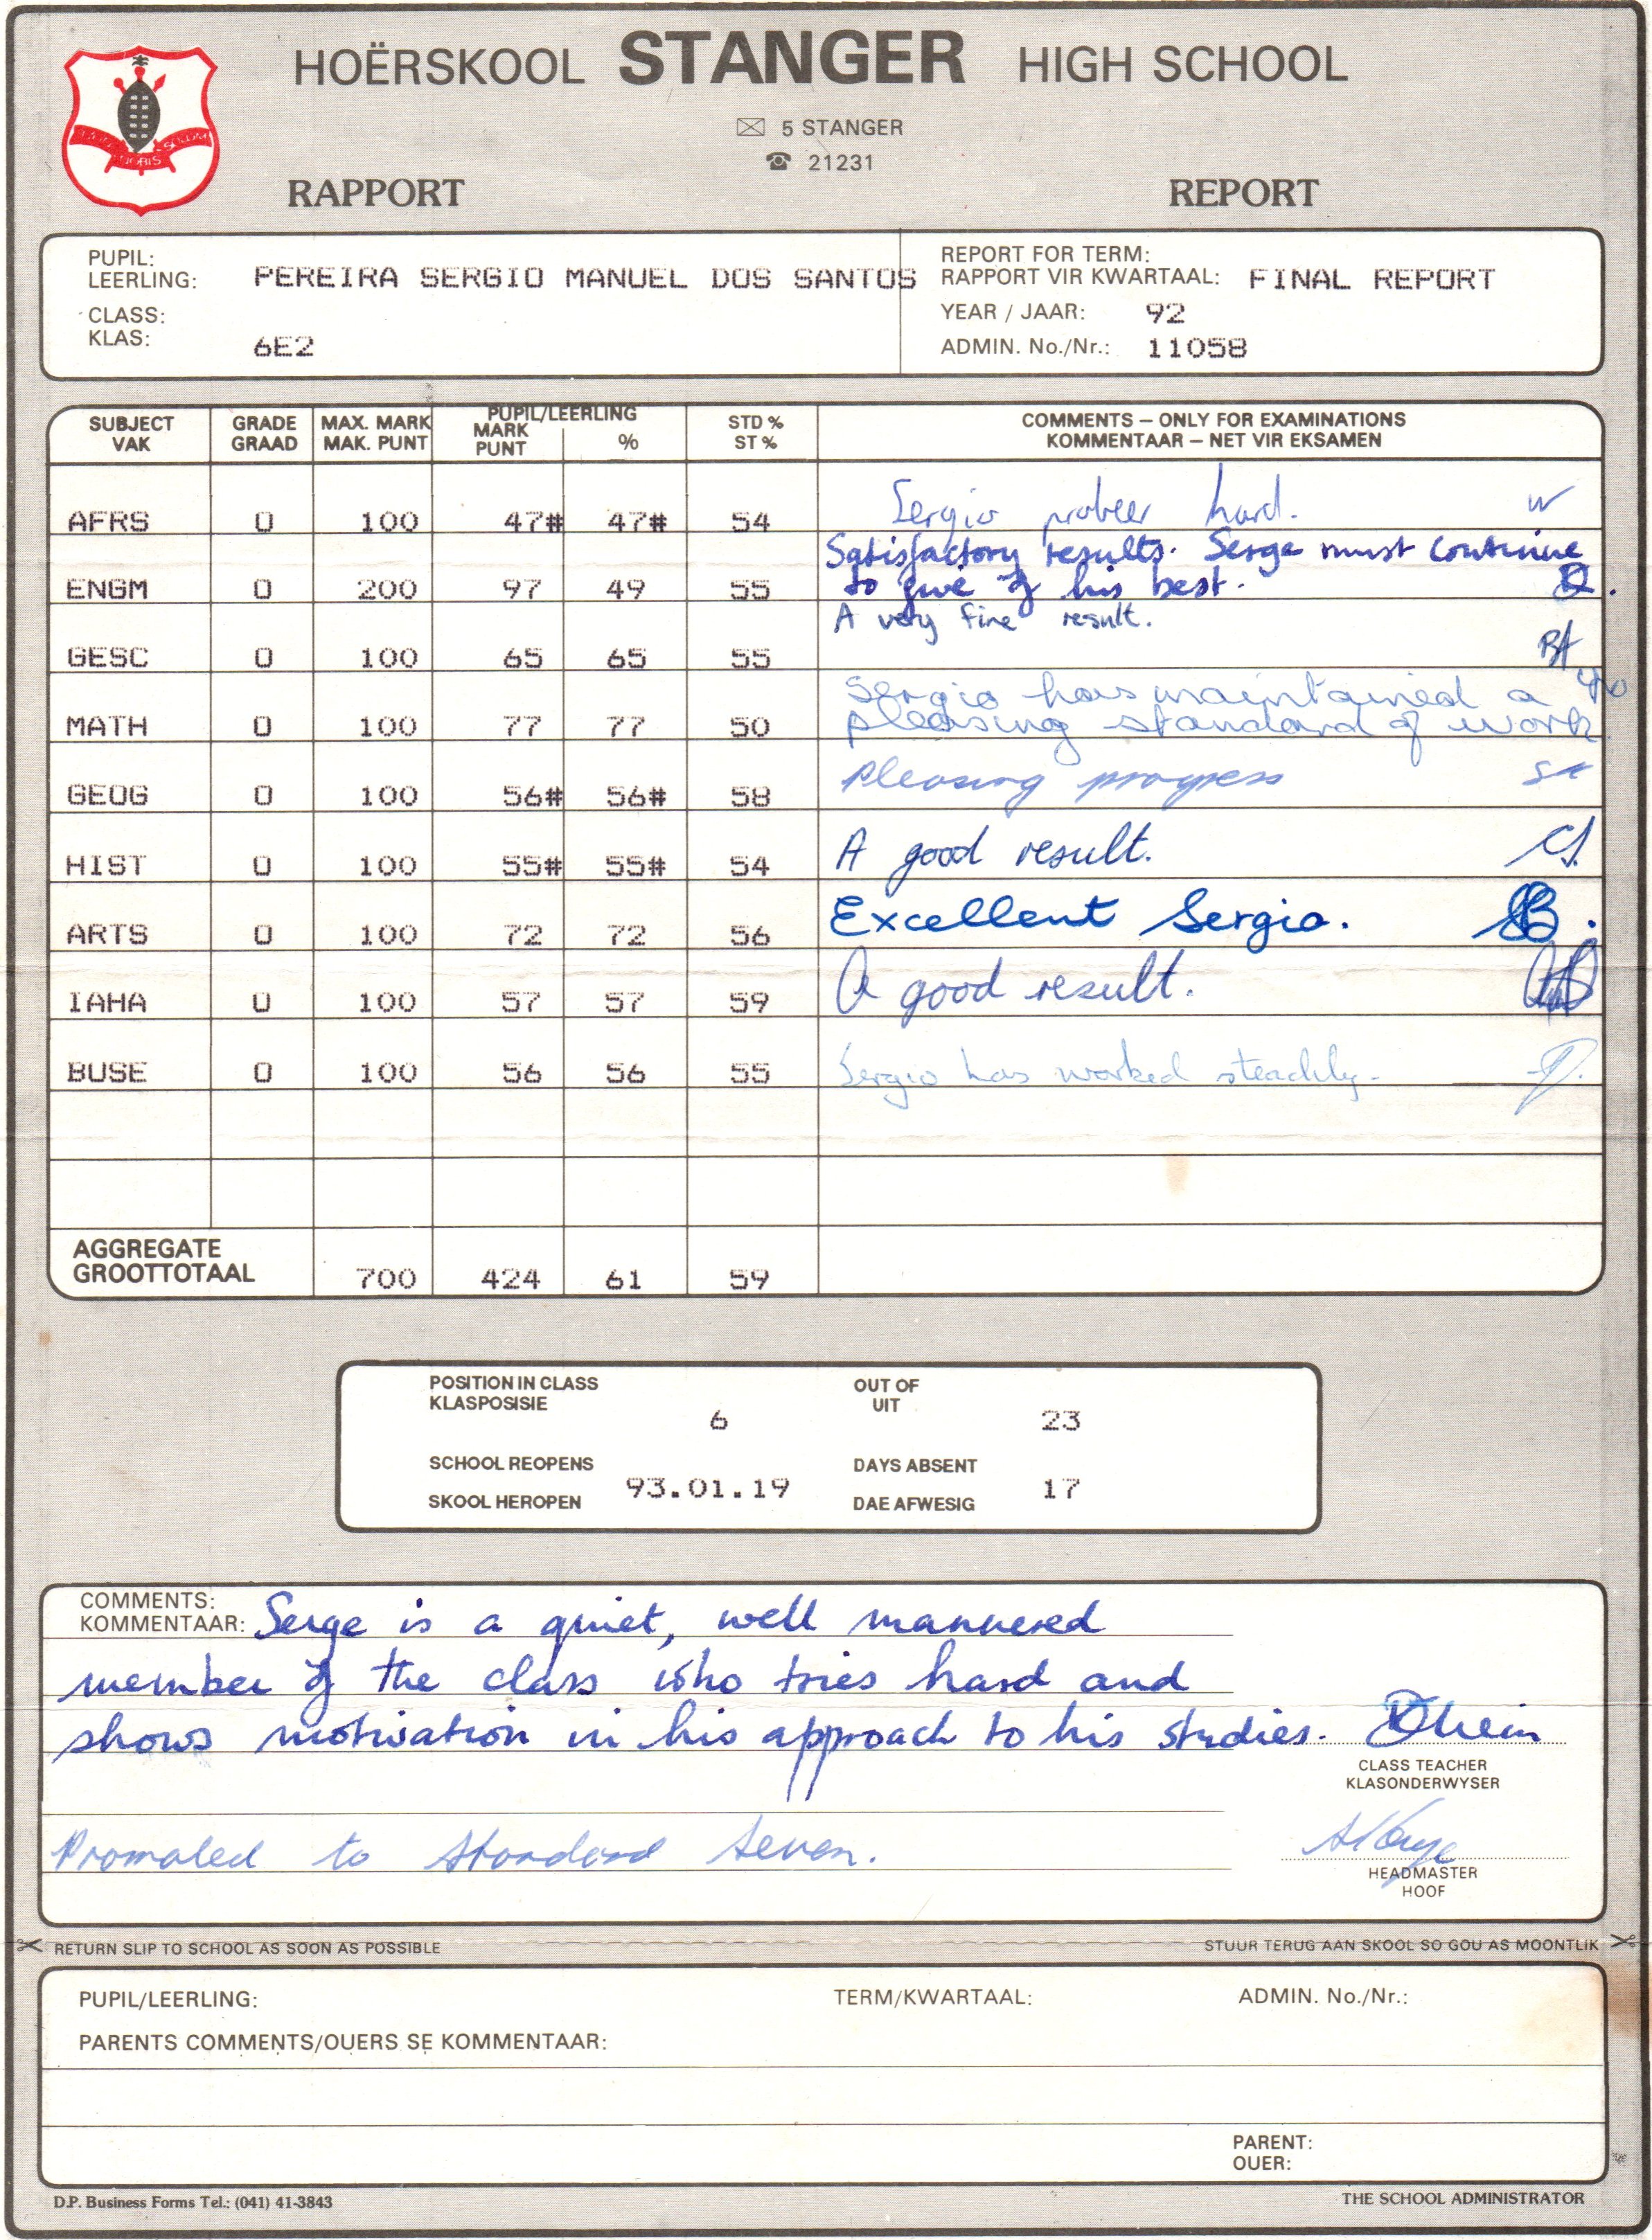 HOËRSKOOL STANGER HIGH SCHOOL
5 STANGER
21231
RAPPORT REPORT
PUPIL:
LEERLING: PEREIRA SERGIO MANUEL DOS SANTOS
CLASS:
KLAS: 6E2
REPORT FOR TERM:
RAPPORT VIR KWARTAAL: FINAL REPORT
YEAR / JAAR: 92
ADMIN. No./Nr.: 11058
SUBJECT GRADE MAX. MARK PUPIL/LEERLING STD % COMMENTS – ONLY FOR EXAMINATIONS
VAK GRAAD MAK. PUNT MARK PUNT % ST % KOMMENTAAR – NET VIR EKSAMEN
AFRS O 100 47# 47# 54 Sergio probeer hard.
ENGM O 200 97 49 55 Satisfactory results. Serge must continue
to give of his best.
GESC O 100 65 65 55 A very fine result. RA
MATH O 100 77 77 50 Sergio has maintained a
pleasing standard of work.
GEOG O 100 56# 56# 58 Pleasing progress
HIST O 100 55# 55# 54 A good result.
ARTS O 100 72 72 56 Excellent Sergio.
IAHA O 100 57 57 59 A good result.
BUSE O 100 56 56 55 Sergio has worked steadily.
AGGREGATE
GROOTTOTAAL 700 424 61 59
POSITION IN CLASS OUT OF
KLASPOSISIE 6 UIT 23
SCHOOL REOPENS DAYS ABSENT
93.01.19 17
SKOOL HEROPEN DAE AFWESIG
COMMENTS:
KOMMENTAAR: Serge is a quiet, well mannered
member of the class who tries hard and
shows motivation in his approach to his studies.
CLASS TEACHER
KLASONDERWYSER
Promoted to Standard Seven.
HEADMASTER
HOOF
RETURN SLIP TO SCHOOL AS SOON AS POSSIBLE STUUR TERUG AAN SKOOL SO GOU AS MOONTLIK
PUPIL/LEERLING: TERM/KWARTAAL: ADMIN. No./Nr.:
PARENTS COMMENTS/OUERS SE KOMMENTAAR:
PARENT:
OUER:
D.P. Business Forms Tel.: (041) 41-3843 THE SCHOOL ADMINISTRATOR